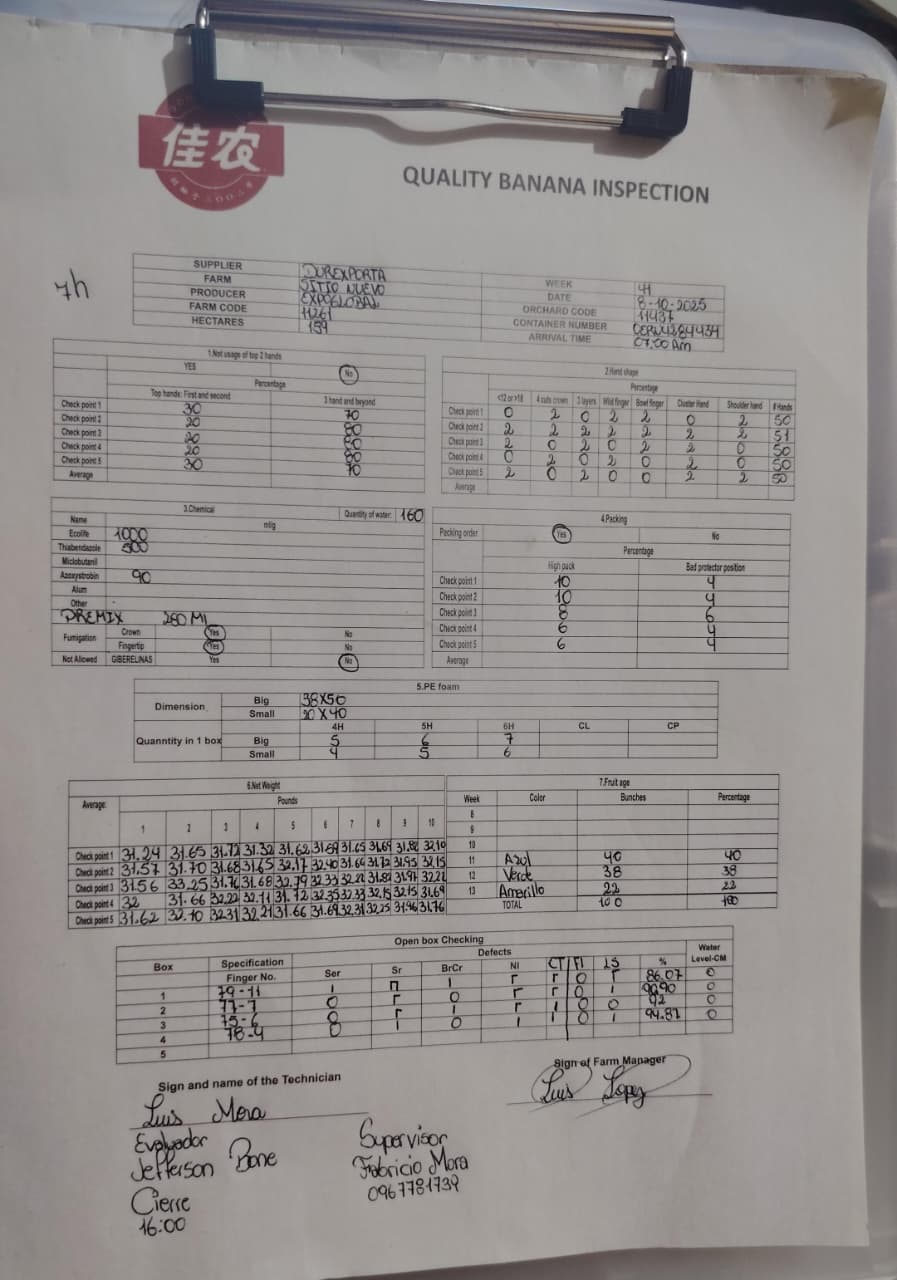 佳农
QUALITY BANANA INSPECTION
7h
SUPPLIER DUREXPORTA
FARM SITIO NUEVO
PRODUCER EXPOGLOBAL
FARM CODE 11261
HECTARES 159
WEEK 41
DATE 8-10-2025
ORCHARD CODE 11437
CONTAINER NUMBER
ARRIVAL TIME 07:00 Am
1.Not usage of top 2 hands
YES No
Percentage
Top hands: First and second 3 hand and beyond
Check point 1 30 70
Check point 2 20 80
Check point 3 20 80
Check point 4 20 80
Check point 5 30 70
Average
2.Hand shape
Percentage
<12 or >18 4 cuts crown 3 layers Wild finger Bowl finger Cluster Hand Shoulder hand # Hands
Check point 1 0 2 0 2 2 0 2 50
Check point 2 2 2 2 2 2 2 2 51
Check point 3 2 0 2 0 2 2 0 50
Check point 4 0 2 0 2 0 2 0 50
Check point 5 2 0 2 0 0 2 2 50
Average
3.Chemical Quantity of water: 160
Name ml/g
Ecolife 1000
Thiabendazole 500
Miclobutanil
Azoxystrobin 90
Alum
Other
PREMIX 260 Ml
Fumigation Crown Yes No
Fingertip Yes No
Not Allowed GIBERELINAS Yes No
4.Packing
Packing order Yes No
Percentage
High pack Bad protector position
Check point 1 10 4
Check point 2 10 4
Check point 3 8 6
Check point 4 6 4
Check point 5 6 4
Average
5.PE foam
Dimension Big 38X50
Small 20 X 40
4H 5H 6H CL CP
Quanntity in 1 box Big 5 6 7
Small 4 5 6
6.Net Weight
Average: Pounds
1 2 3 4 5 6 7 8 9 10
Check point 1 31.24 31.65 31.72 31.32 31.62 31.69 31.65 31.69 31.82 32.10
Check point 2 31.57 31.70 31.68 31.65 32.17 32.40 31.66 31.72 31.95 32.15
Check point 3 31.56 33.25 31.76 31.68 32.79 32.33 32.22 31.82 31.97 32.22
Check point 4 32 31.66 32.22 32.11 31.72 32.35 32.33 32.15 32.15 31.69
Check point 5 31.62 32.10 32.31 32.21 31.66 31.69 32.31 32.25 31.96 31.76
7.Fruit age
Week Color Bunches Percentage
8
9
10
11 Azul 40 40
12 Verde 38 38
13 Amarillo 22 22
TOTAL 100 100
Open box Checking
Box Specification Defects Water
Finger No. Ser Sr BrCr NI CT FI LS % Level-CM
1 79-11 86.07 0
2 77-7 90.90 0
3 75-6 92 0
4 78-4 94.87 0
5
Sign and name of the Technician
Sign of Farm Manager
Luis Mora
Luis Lopez
Evaluador
Jefferson Bone
Supervisor
Fabricio Mora
0967781739
Cierre
16:00